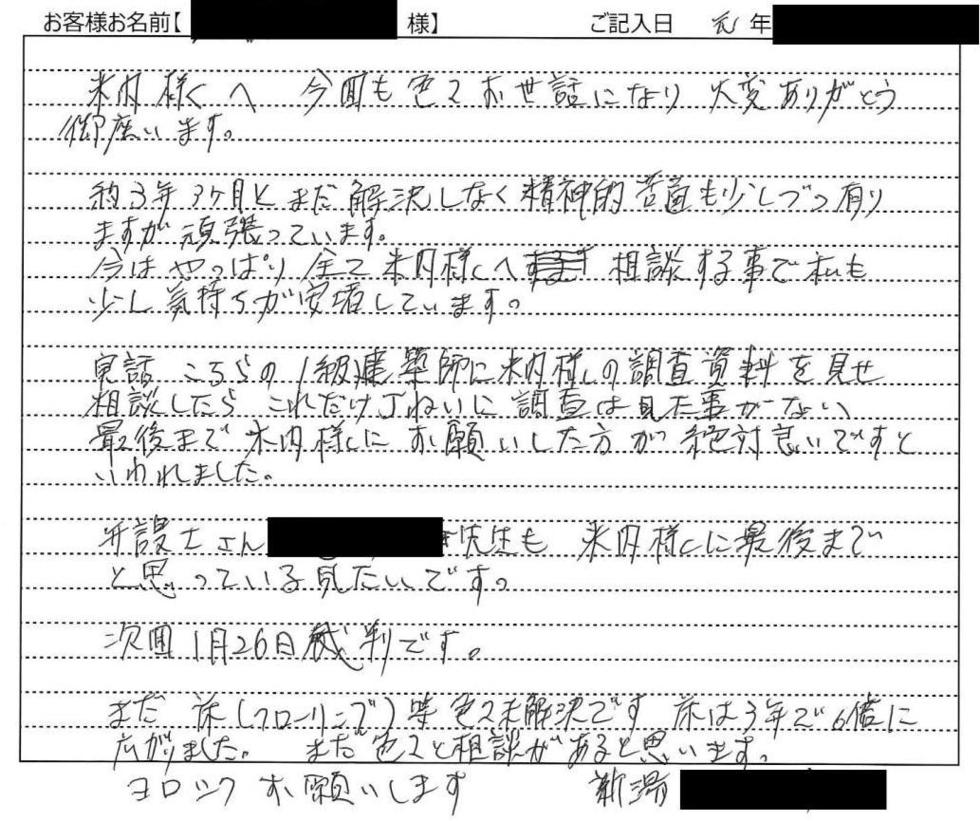 お客様お名前【 様】 ご記入日 元年
米内様へ 今回も色々お世話になり 大変ありがとう
御座います。
約3年3ヶ月とまだ解決しなく精神的苦痛も少しづつ有り
ますが頑張っています。
今はやっぱり全て米内様へ 相談する事で私も
少し気持ちが安堵しています。
実話 こちらの1級建築師に米内様の調査資料を見せ
相談したら これだけ丁ねいに調査は見た事がない
最後まで米内様にお願いした方が絶対良いですと
いわれました。
弁護士さん 先生も 米内様に最後まで
と思っている見たいです。
次回1月26日裁判です。
まだ床(フローリング)等色々未解決です 床は3年で6倍に
広がりました。 まだ色々と相談があると思います。
ヨロシクお願いします 新潟